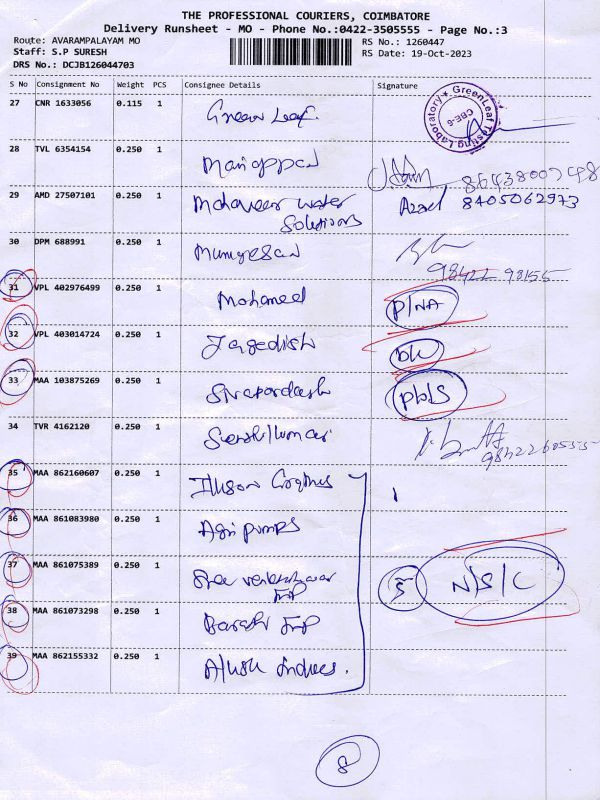 THE PROFESSIONAL COURIERS, COIMBATORE
Delivery Runsheet - MO - Phone No.:0422-3505555 - Page No.:3
Route: AVARAMPALAYAM MO RS No.: 1260447
Staff: S.P SURESH RS Date: 19-Oct-2023
DRS No.: DCJB126044703
S No Consignment No Weight PCS Consignee Details Signature
27 CNR 1633056 0.115 1 Green Leaf.
GreenLeaf Testing Laboratory ★ CBE-6
28 TVL 6354154 0.250 1 Mariappan
29 AMD 27507101 0.250 1 Mahaveer water Solutions 8405062973
30 DPM 688991 0.250 1 Murugesan 98422 98155
31 VPL 402976499 0.250 1 Mohamed P/NA
32 VPL 403014724 0.250 1 Jagedish DL
33 MAA 103875269 0.250 1
34 TVR 4162120 0.250 1 Senthilkumar
35 MAA 862160607 0.250 1
36 MAA 861083980 0.250 1 Agri pumps
37 MAA 861075389 0.250 1 Sree venkateshwar 5 N/S/C
38 MAA 861073298 0.250 1
39 MAA 862155332 0.250 1
8